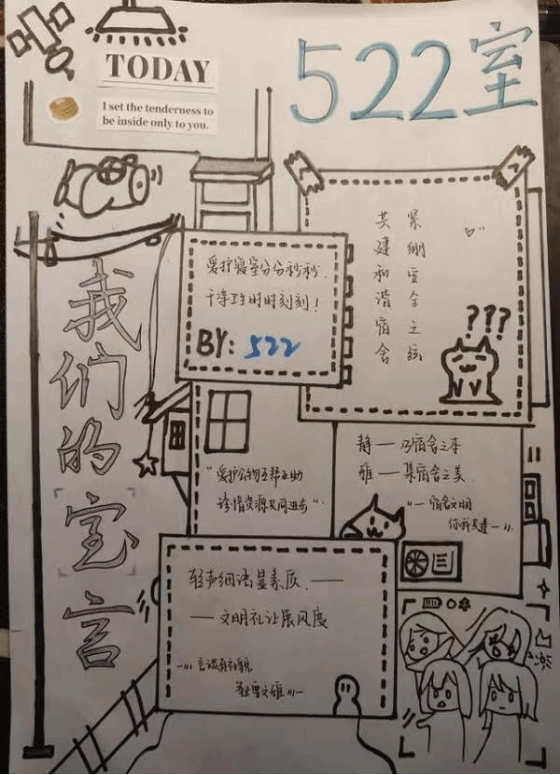 TODAY
I set the tenderness to
be inside only to you.
522室
紧绷安全之弦
共建和谐宿舍
???
爱护寝室分分秒秒
干净卫生时时刻刻！
BY: 522
我们的室言
静——乃宿舍之本
雅——集宿舍之美
"—宿舍文明
你我共建—"
"爱护公物互帮互助
珍惜资源共同进步"
轻声细语显素质.——
——文明礼让展风度
—"言谈有礼貌
举止要文雅"—